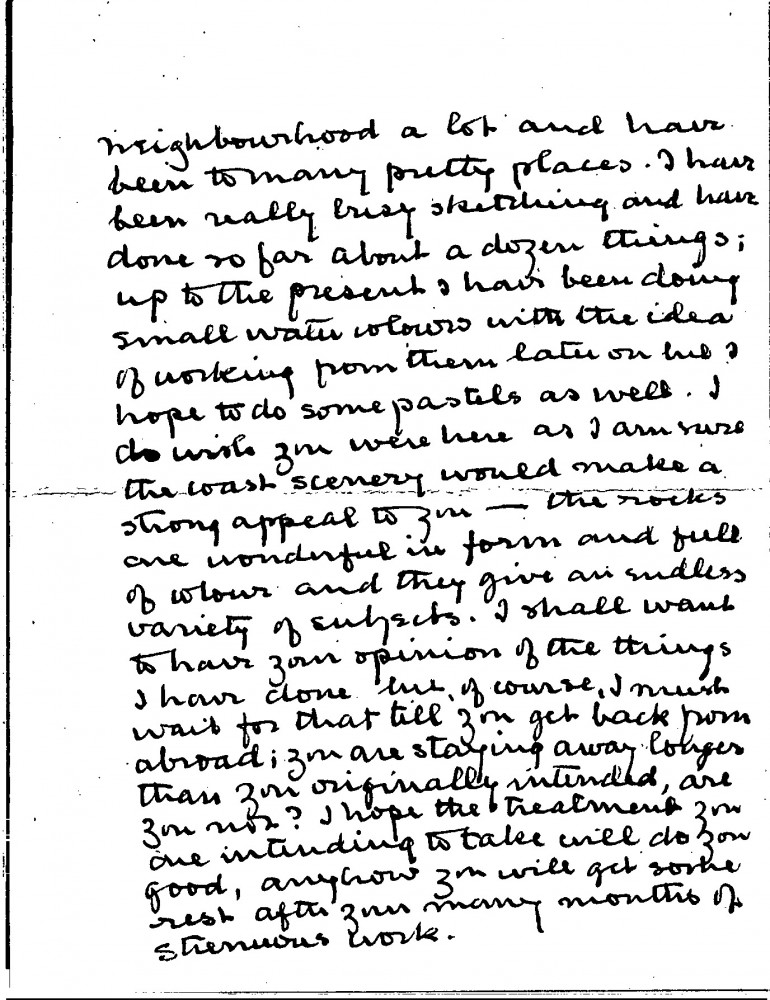 neighbourhood a lot and have
been to many pretty places. I have
been really busy sketching and have
done so far about a dozen things;
up to the present I have been doing
small water colours with the idea
of working from them later on but I
hope to do some pastels as well. I
do wish you were here as I am sure
the coast scenery would make a
strong appeal to you — the rocks
are wonderful in form and full
of colour and they give an endless
variety of subjects. I shall want
to have your opinion of the things
I have done but, of course, I must
wait for that till you get back from
abroad; you are staying away longer
than you originally intended, are
you not? I hope the treatment you
are intending to take will do you
good, anyhow you will get some
rest after your many months of
strenuous work.